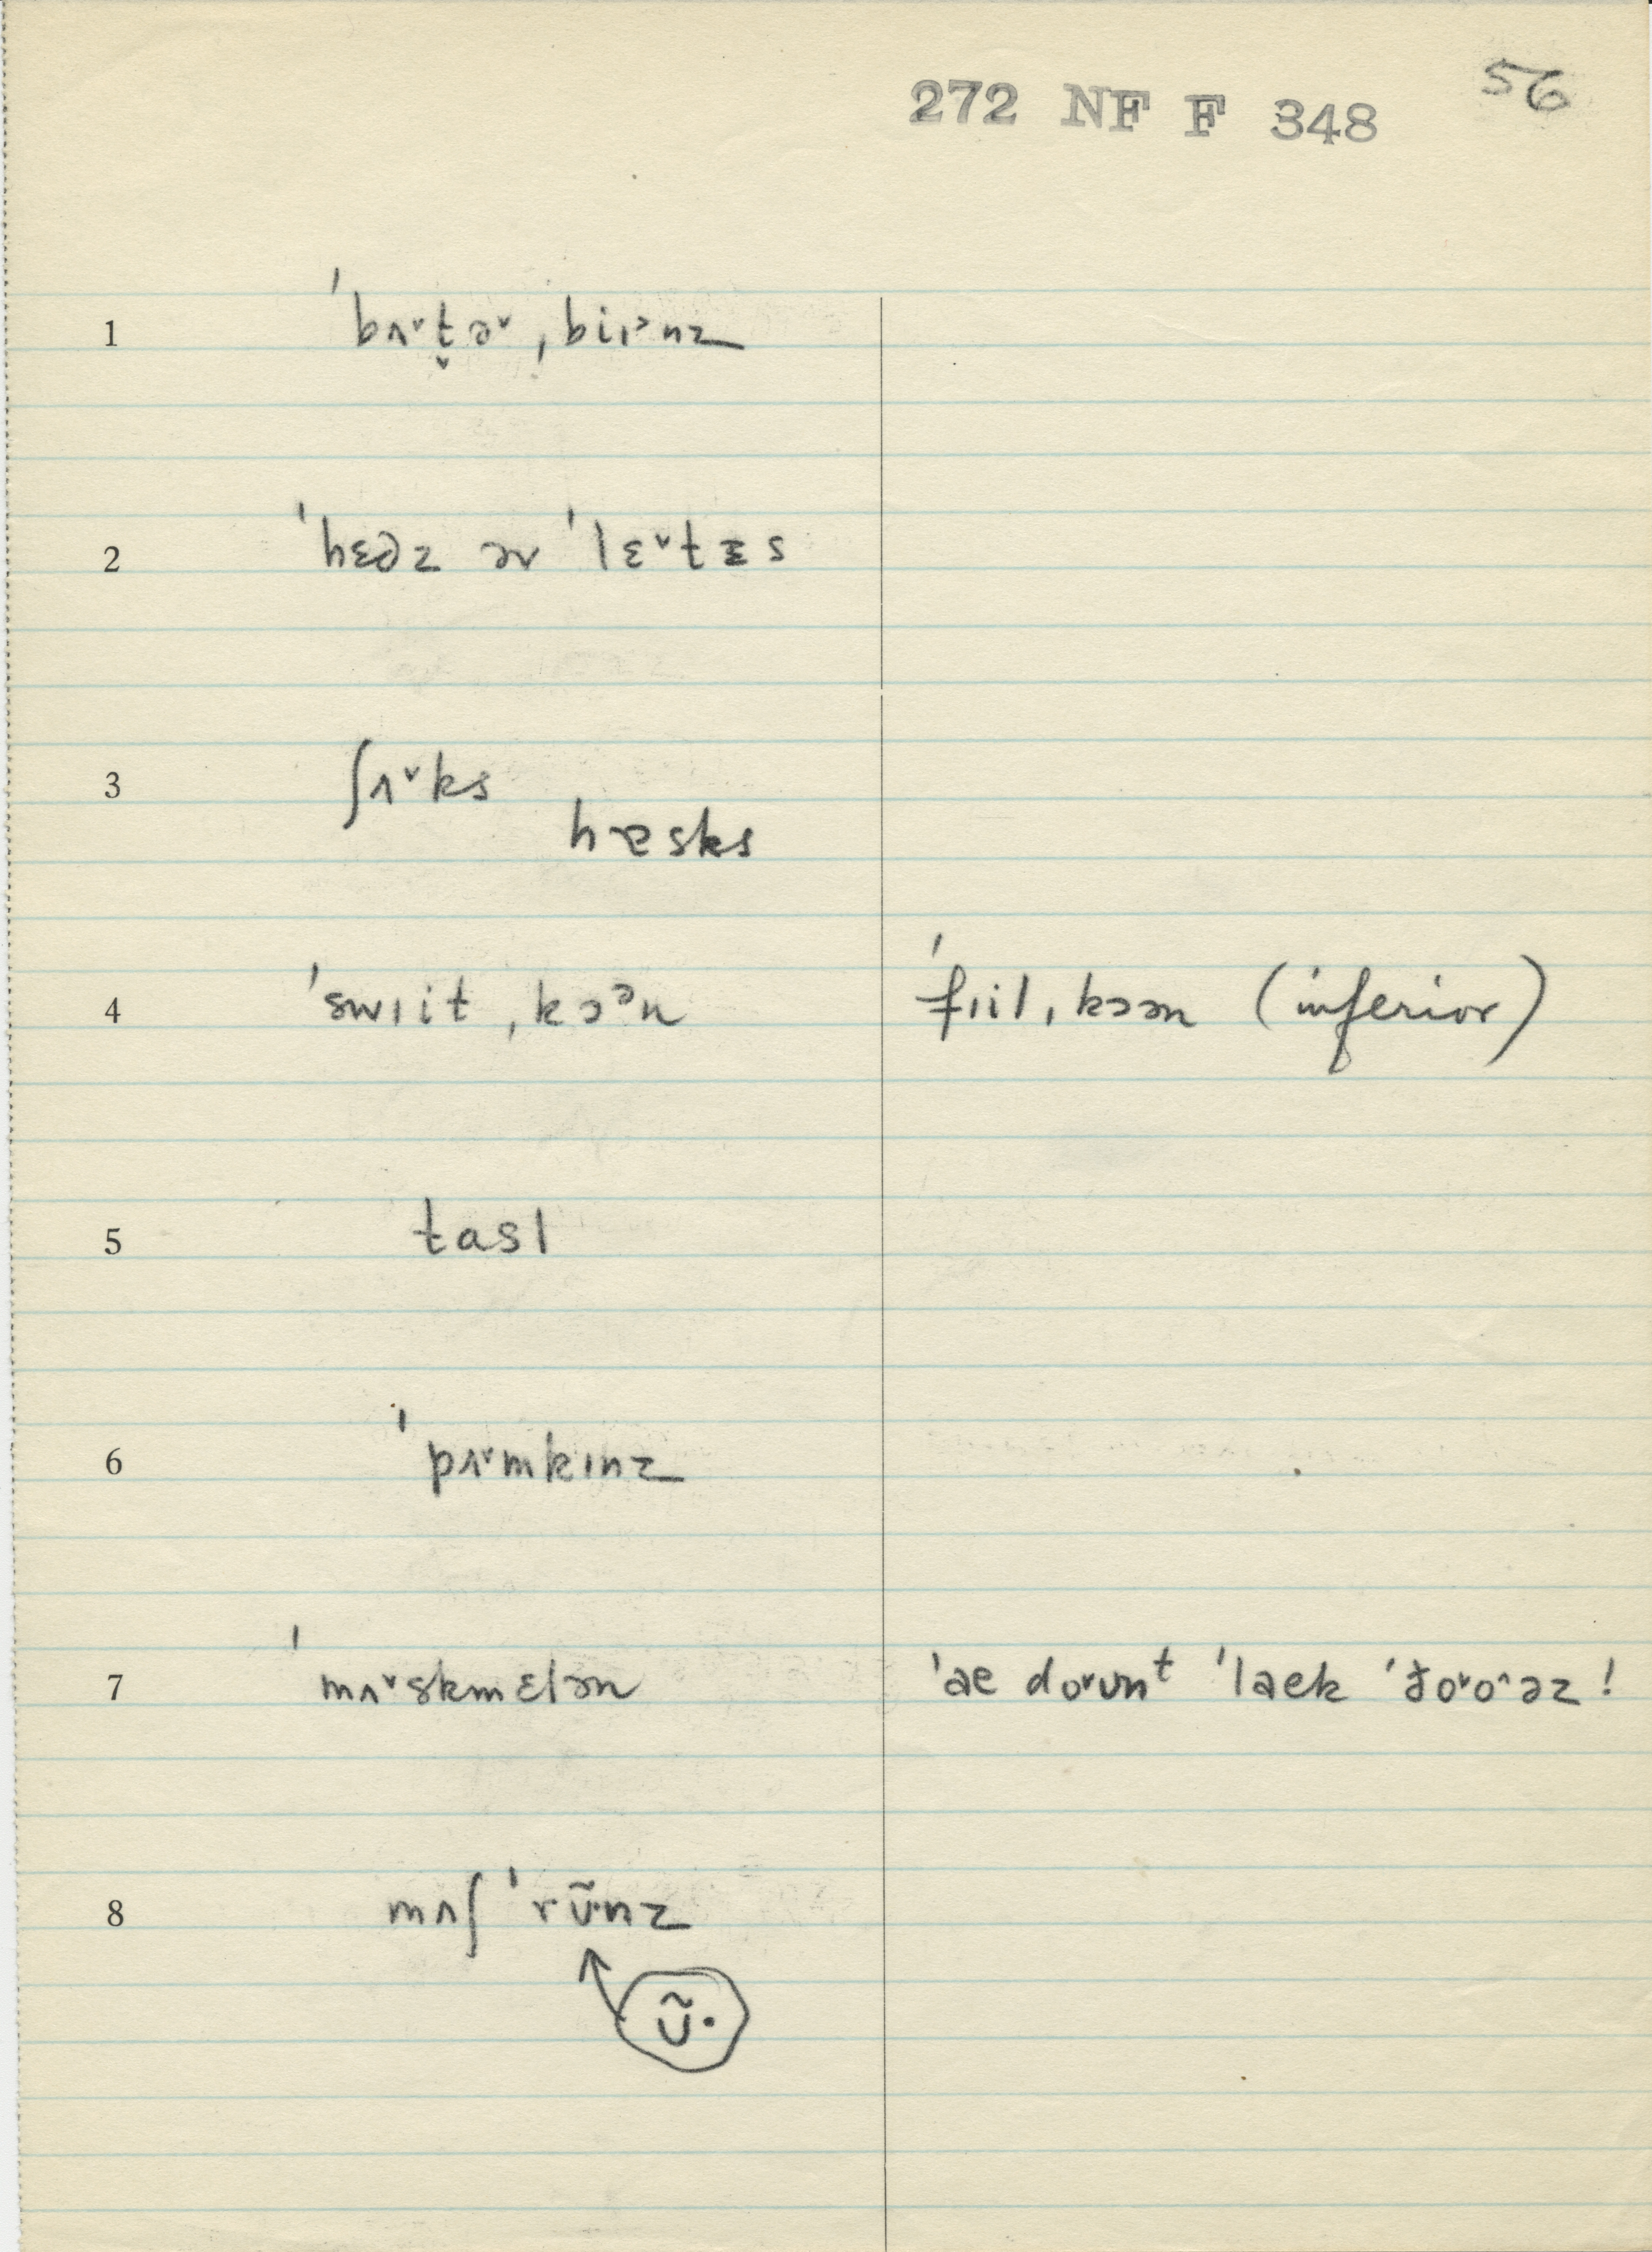 272 NF F 348 56
1 ˈbʌ˅t̬ə˅ˌbiɪᵊnz
2 ˈhɛdz əv ˈlɛ˅tɪs
3 ʃʌ˅ks
hæsks
4 ˈswɪitˌkɔᵊn ˈfɪilˌkɔən (inferior)
5 tasl
6 ˈpʌ˅mkɪnz
7 ˈmʌ˅skmɛlən ˈae do˅ʊnᵗ ˈlaek ˈðo˅o^əz!
8 mʌʃˈrʊ̃·nz
ʊ̃·